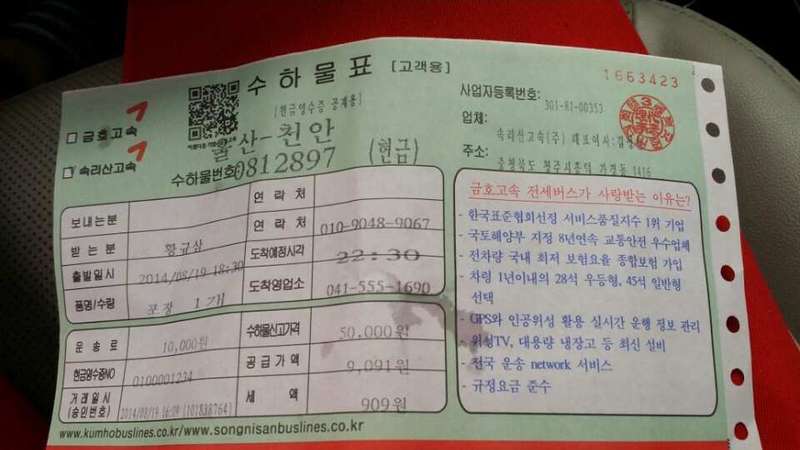 수하물표 [고객용]
1663423
[현금영수증 공제용]
사업자등록번호: 301-81-00353
□ 금호고속
울산-천안
업체: 속리산고속(주) 대표이사:
□ 속리산고속
수하물번호0812897 (현금)
주소: 충청북도 청주시흥덕 가경동 1416
보내는분
연락처
받는분 황규삼 연락처 010-9048-9067
출발일시 2014/08/19 18:30 도착예정시각 22:30
품명/수량 포장 1개 도착영업소 041-555-1690
운송료 10,000원 수하물신고가격 50,000원
현금영수증NO 0100001234 공급가액 9,091원
거래일시(승인번호) 2014/08/19 16:09 (101838764) 세액 909원
www.kumhobuslines.co.kr/www.songnisanbuslines.co.kr
금호고속 전세버스가 사랑받는 이유는?
- 한국표준협회선정 서비스품질지수 1위 기업
- 국토해양부 지정 8년연속 교통안전 우수업체
- 전차량 국내 최저 보험요율 종합보험 가입
- 차령 1년이내의 28석 우등형, 45석 일반형
선택
- GPS와 인공위성 활용 실시간 운행 정보 관리
- 위성TV, 대용량 냉장고 등 최신 설비
- 전국 운송 network 서비스
- 규정요금 준수